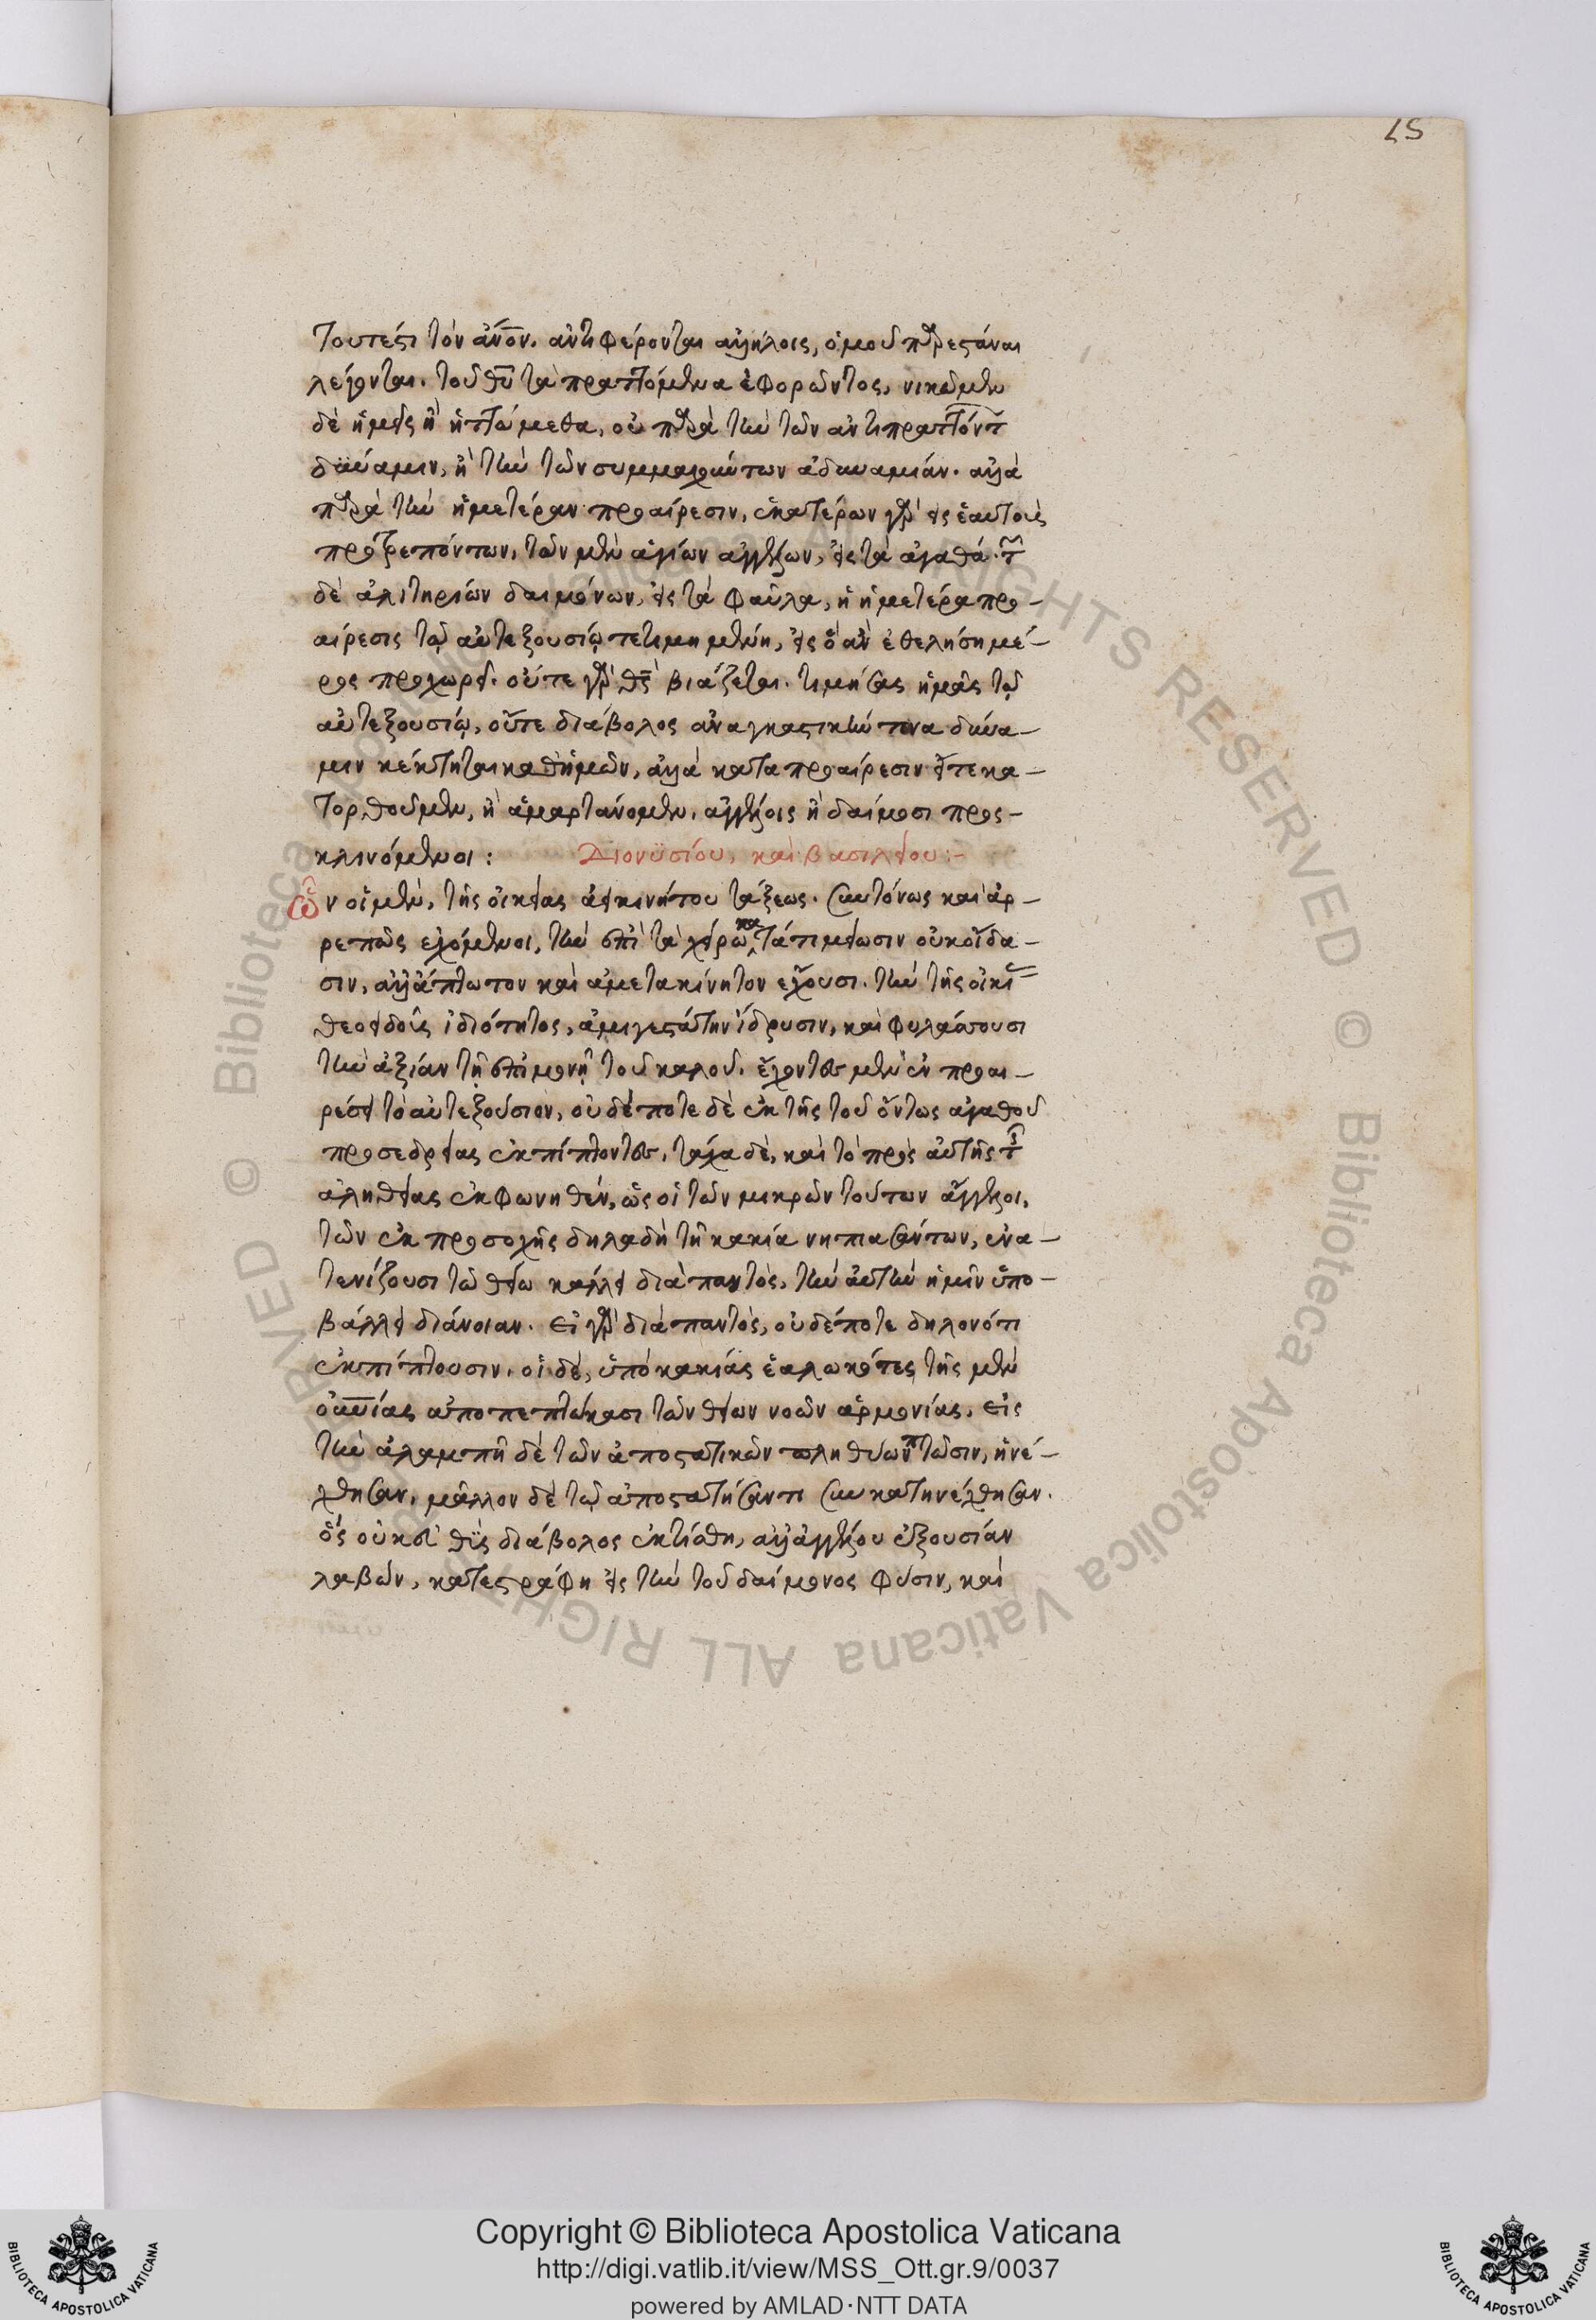 15
τουτέστι τὸν ἄνον. ἀντιφέρονται ἀλλήλοις, ὁμοῦ παρεστάναι
λέγονται. τοῦ θυ τὰ πραττόμενα ἐφορῶντος, νικῶμεν
δὲ ἡμεῖς ἢ ἡττώμεθα, οὐ παρὰ τὴν τῶν ἀντιπραττόντ
δύναμιν, ἢ τὴν τῶν συμμαχούντων ἀδυναμίαν. ἀλλὰ
παρὰ τὴν ἡμετέραν προαίρεσιν, ἑκατέρων γὰρ εἰς ἑαυτοὺς
προτρεπόντων, τῶν μὲν ἁγίων ἀγγέλων, εἰς τὰ ἀγαθά. τῶν
δὲ ἀλιτηρίων δαιμόνων, εἰς τὰ φαῦλα, ἡ ἡμετέρα προ-
αίρεσις τῷ αὐτεξουσίῳ τετιμημένη, εἰς ὃ ἂν ἐθελήσῃ μέ-
ρος προχωρεῖ. οὔτε γὰρ θς βιάζεται. τιμήσας ἡμᾶς τῷ
αὐτεξουσίῳ, οὔτε διάβολος ἀναγκαστικήν τινα δύνα-
μιν κέκτηται καθ' ἡμῶν, ἀλλὰ κατα προαίρεσιν εἴτε κα-
τορθοῦμεν, ἢ ἁμαρτάνομεν. ἀγγέλοις ἢ δαίμοσι προς-
κλινόμενοι: Διονϋσίου, καὶ βασιλείου:-
Ὧν οἱ μὲν, τῆς οἰκείας ἀεικινήτου τάξεως. συντόνως καὶ ἀρ-
ρεπῶς ἐχόμενοι, τὴν ἐπὶ τὰ χείρω κατάπτωσιν οὐκ οἴδα-
σιν, ἀλλ' ἄπτωτον καὶ ἀμετακίνητον ἔχουσι. τὴν τῆς οἰκεί
θεοειδοῦς ἰδιότητος, ἀμιγεστάτην ἵδρυσιν, καὶ φυλάττουσι
τὴν ἀξίαν τῇ ἐπιμονῇ τοῦ καλοῦ. ἔχοντες μὲν ἐν προαι-
ρέσει τὸ αὐτεξούσιον, οὐδέποτε δὲ ἐκ τῆς τοῦ ὄντως ἀγαθοῦ
προσεδρείας ἐκπίπτοντες, τάχα δὲ, καὶ τὸ πρὸς αὐτῆς τῆς
ἀληθείας ἐκφωνηθέν, ὡς οἱ τῶν μικρῶν τούτων ἄγγελοι,
τῶν ἐκ προσοχῆς δηλαδὴ τῇ κακίᾳ νηπιασάντων, ἐνα-
τενίζουσι τῷ θείῳ κάλλει διὰ παντὸς, τὴν αὐτὴν ἡμῖν ὑπο-
βάλλει διάνοιαν. Εἰ γὰρ διὰ παντὸς, οὐδέποτε δηλονότι
ἐκπίπτουσιν. οἱ δὲ, ὑπὸ κακίας ἑαλωκότες τῆς μὲν
ουνίας ἀποπεπτώκασι τῶν θείων νοῶν ἁρμονίας. Εἰς
τὴν ἀλαμπῆ δὲ τῶν ἀποστατικῶν πληθύων πτῶσιν, ἠνέ-
χθησαν, μᾶλλον δὲ τῷ ἀποστατήσαντι συγκατηνέχθησαν.
ὃς οὐκ εὐθὺς διάβολος ἐκτίσθη, ἀλλ' ἀγγέλου ἐξουσίαν
λαβὼν, κατεστράφη εἰς τὴν τοῦ δαίμονος φύσιν, καὶ
Copyright © Biblioteca Apostolica Vaticana
http://digi.vatlib.it/view/MSS_Ott.gr.9/0037
powered by AMLAD·NTT DATA